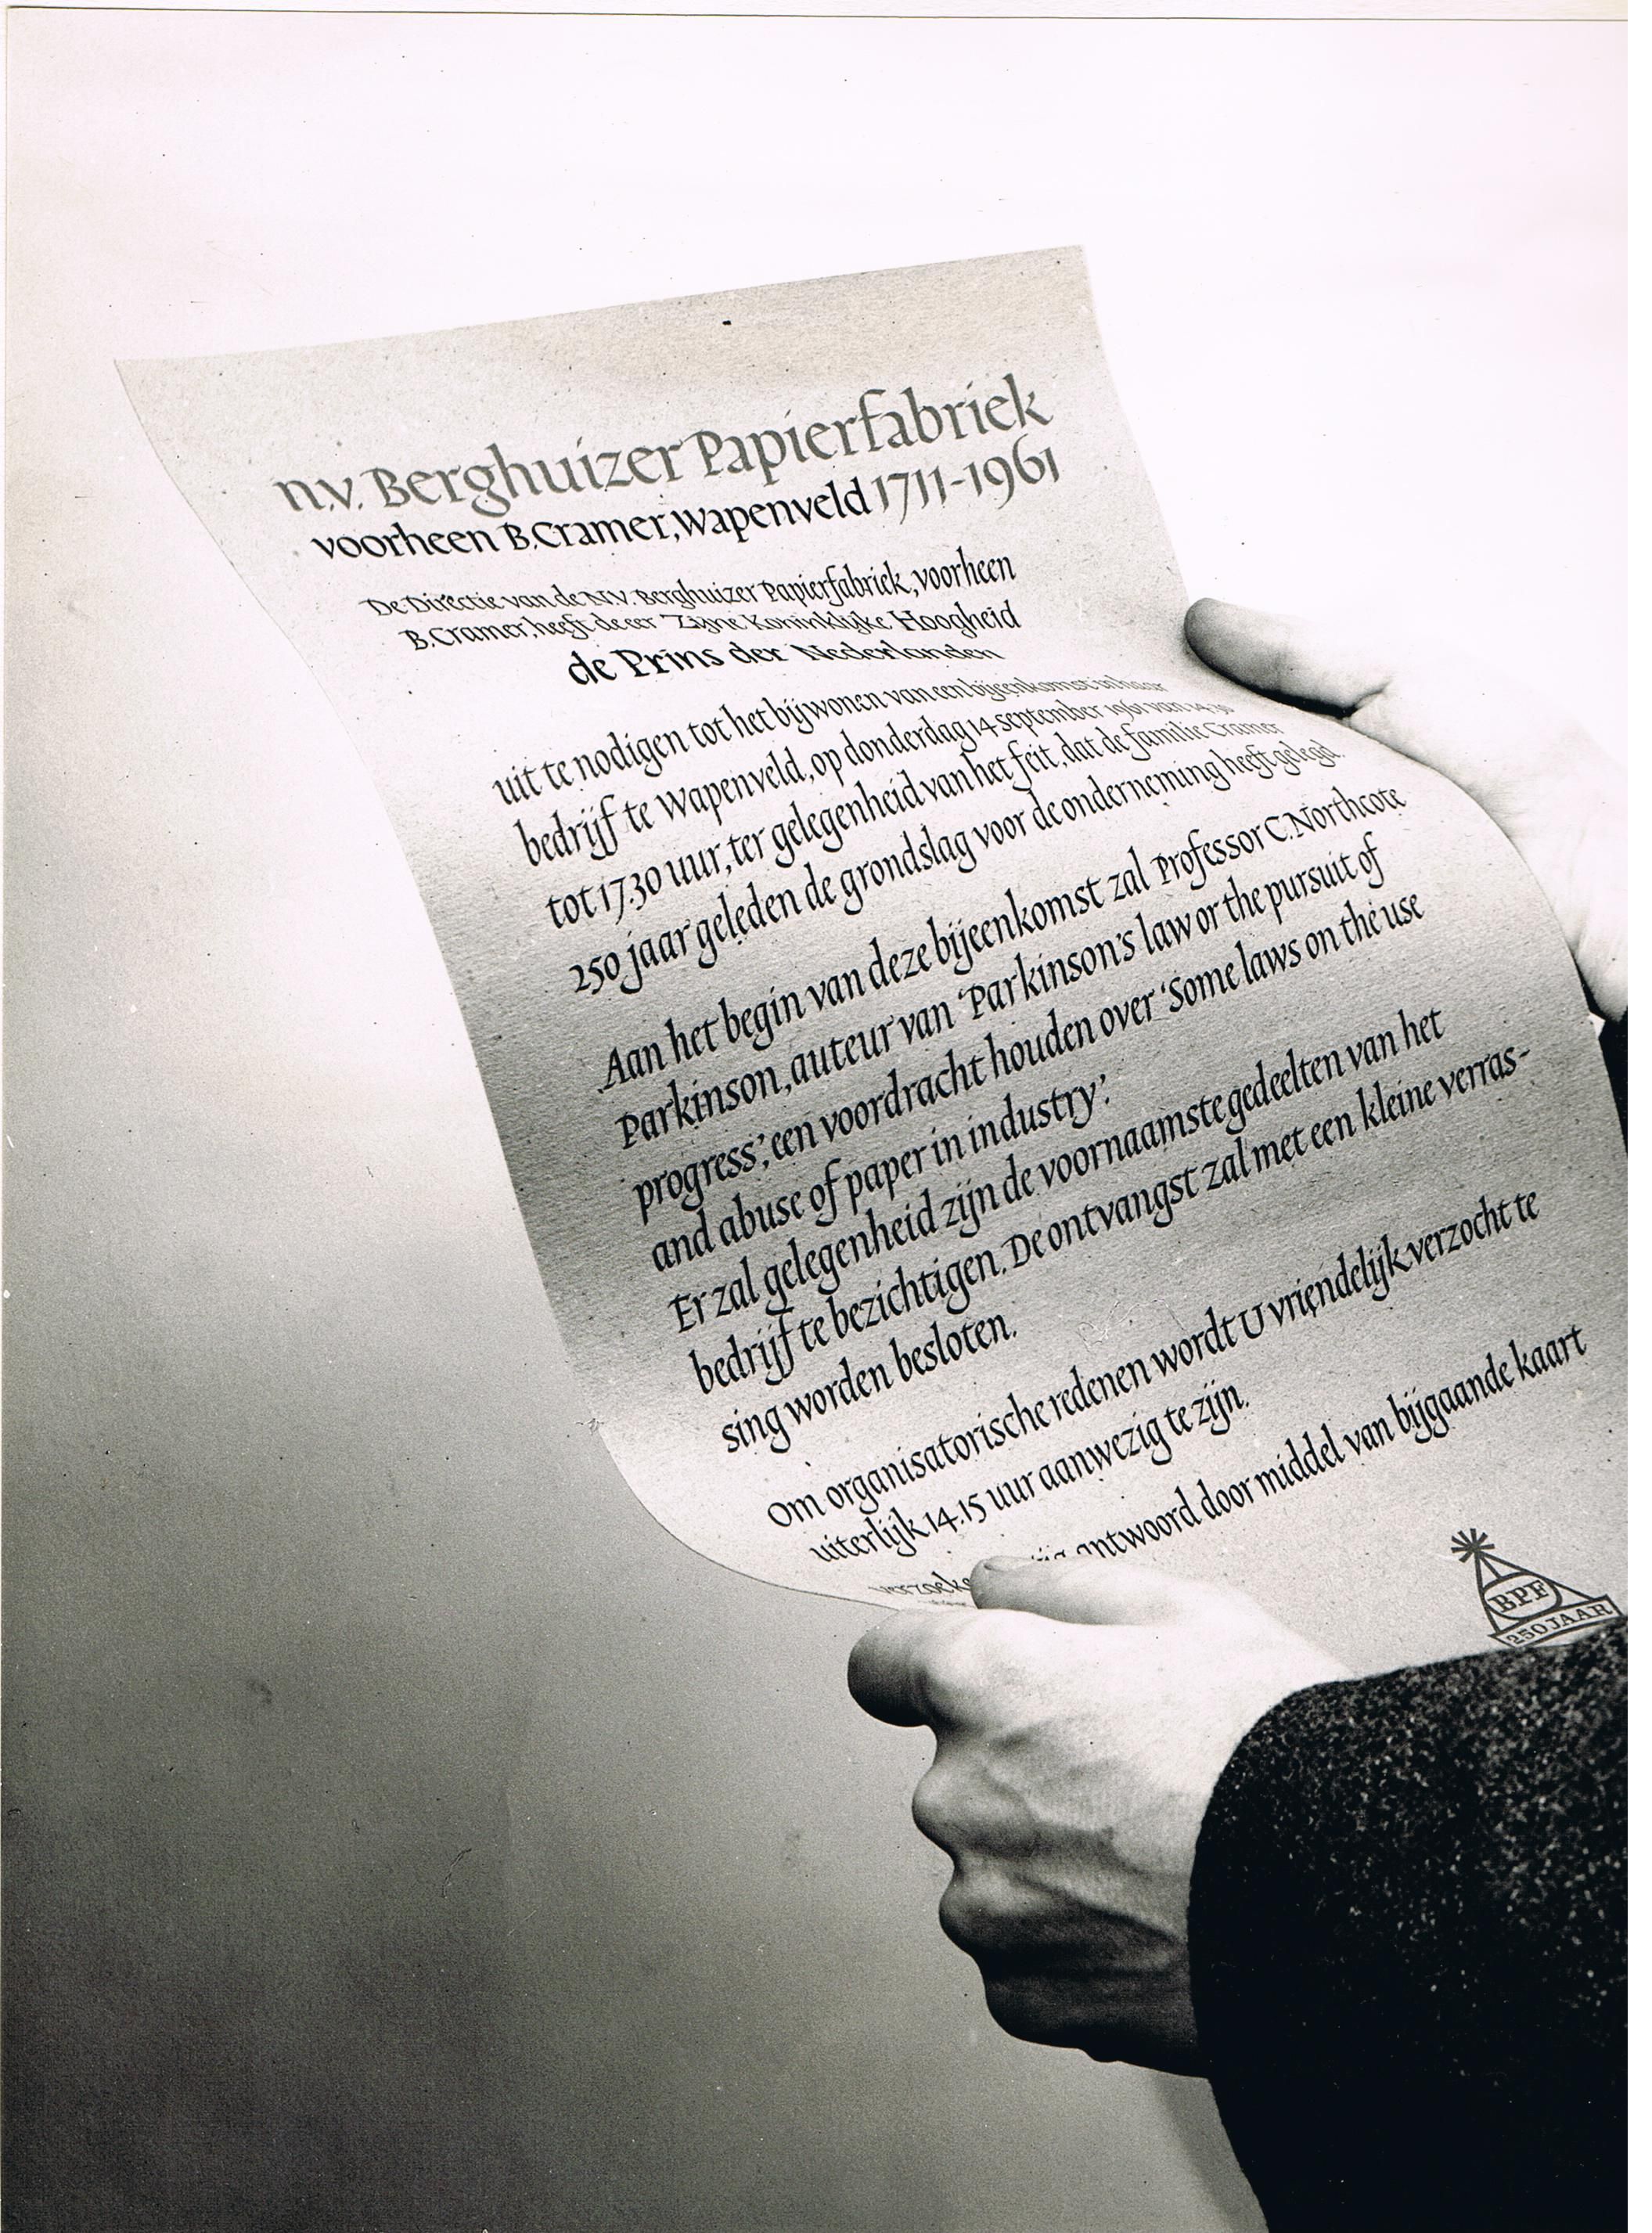 n.v. Berghuizer Papierfabriek
voorheen B.Cramer, Wapenveld 1711-1961
De Directie van de N.V. Berghuizer Papierfabriek, voorheen
B.Cramer, heeft de eer Zijne Koninklijke Hoogheid
de Prins der Nederlanden
uit te nodigen tot het bijwonen van een bijeenkomst in haar
bedrijf te Wapenveld, op donderdag 14 september 1961 van 14.30
tot 17.30 uur, ter gelegenheid van het feit, dat de familie Cramer
250 jaar geleden de grondslag voor de onderneming heeft gelegd.
Aan het begin van deze bijeenkomst zal Professor C. Northcote
Parkinson, auteur van 'Parkinson's law or the pursuit of
progress', een voordracht houden over 'Some laws on the use
and abuse of paper in industry'.
Er zal gelegenheid zijn de voornaamste gedeelten van het
bedrijf te bezichtigen. De ontvangst zal met een kleine verras-
sing worden besloten.
Om organisatorische redenen wordt U vriendelijk verzocht te
uiterlijk 14.15 uur aanwezig te zijn.
antwoord door middel van bijgaande kaart
BPF
250 JAAR